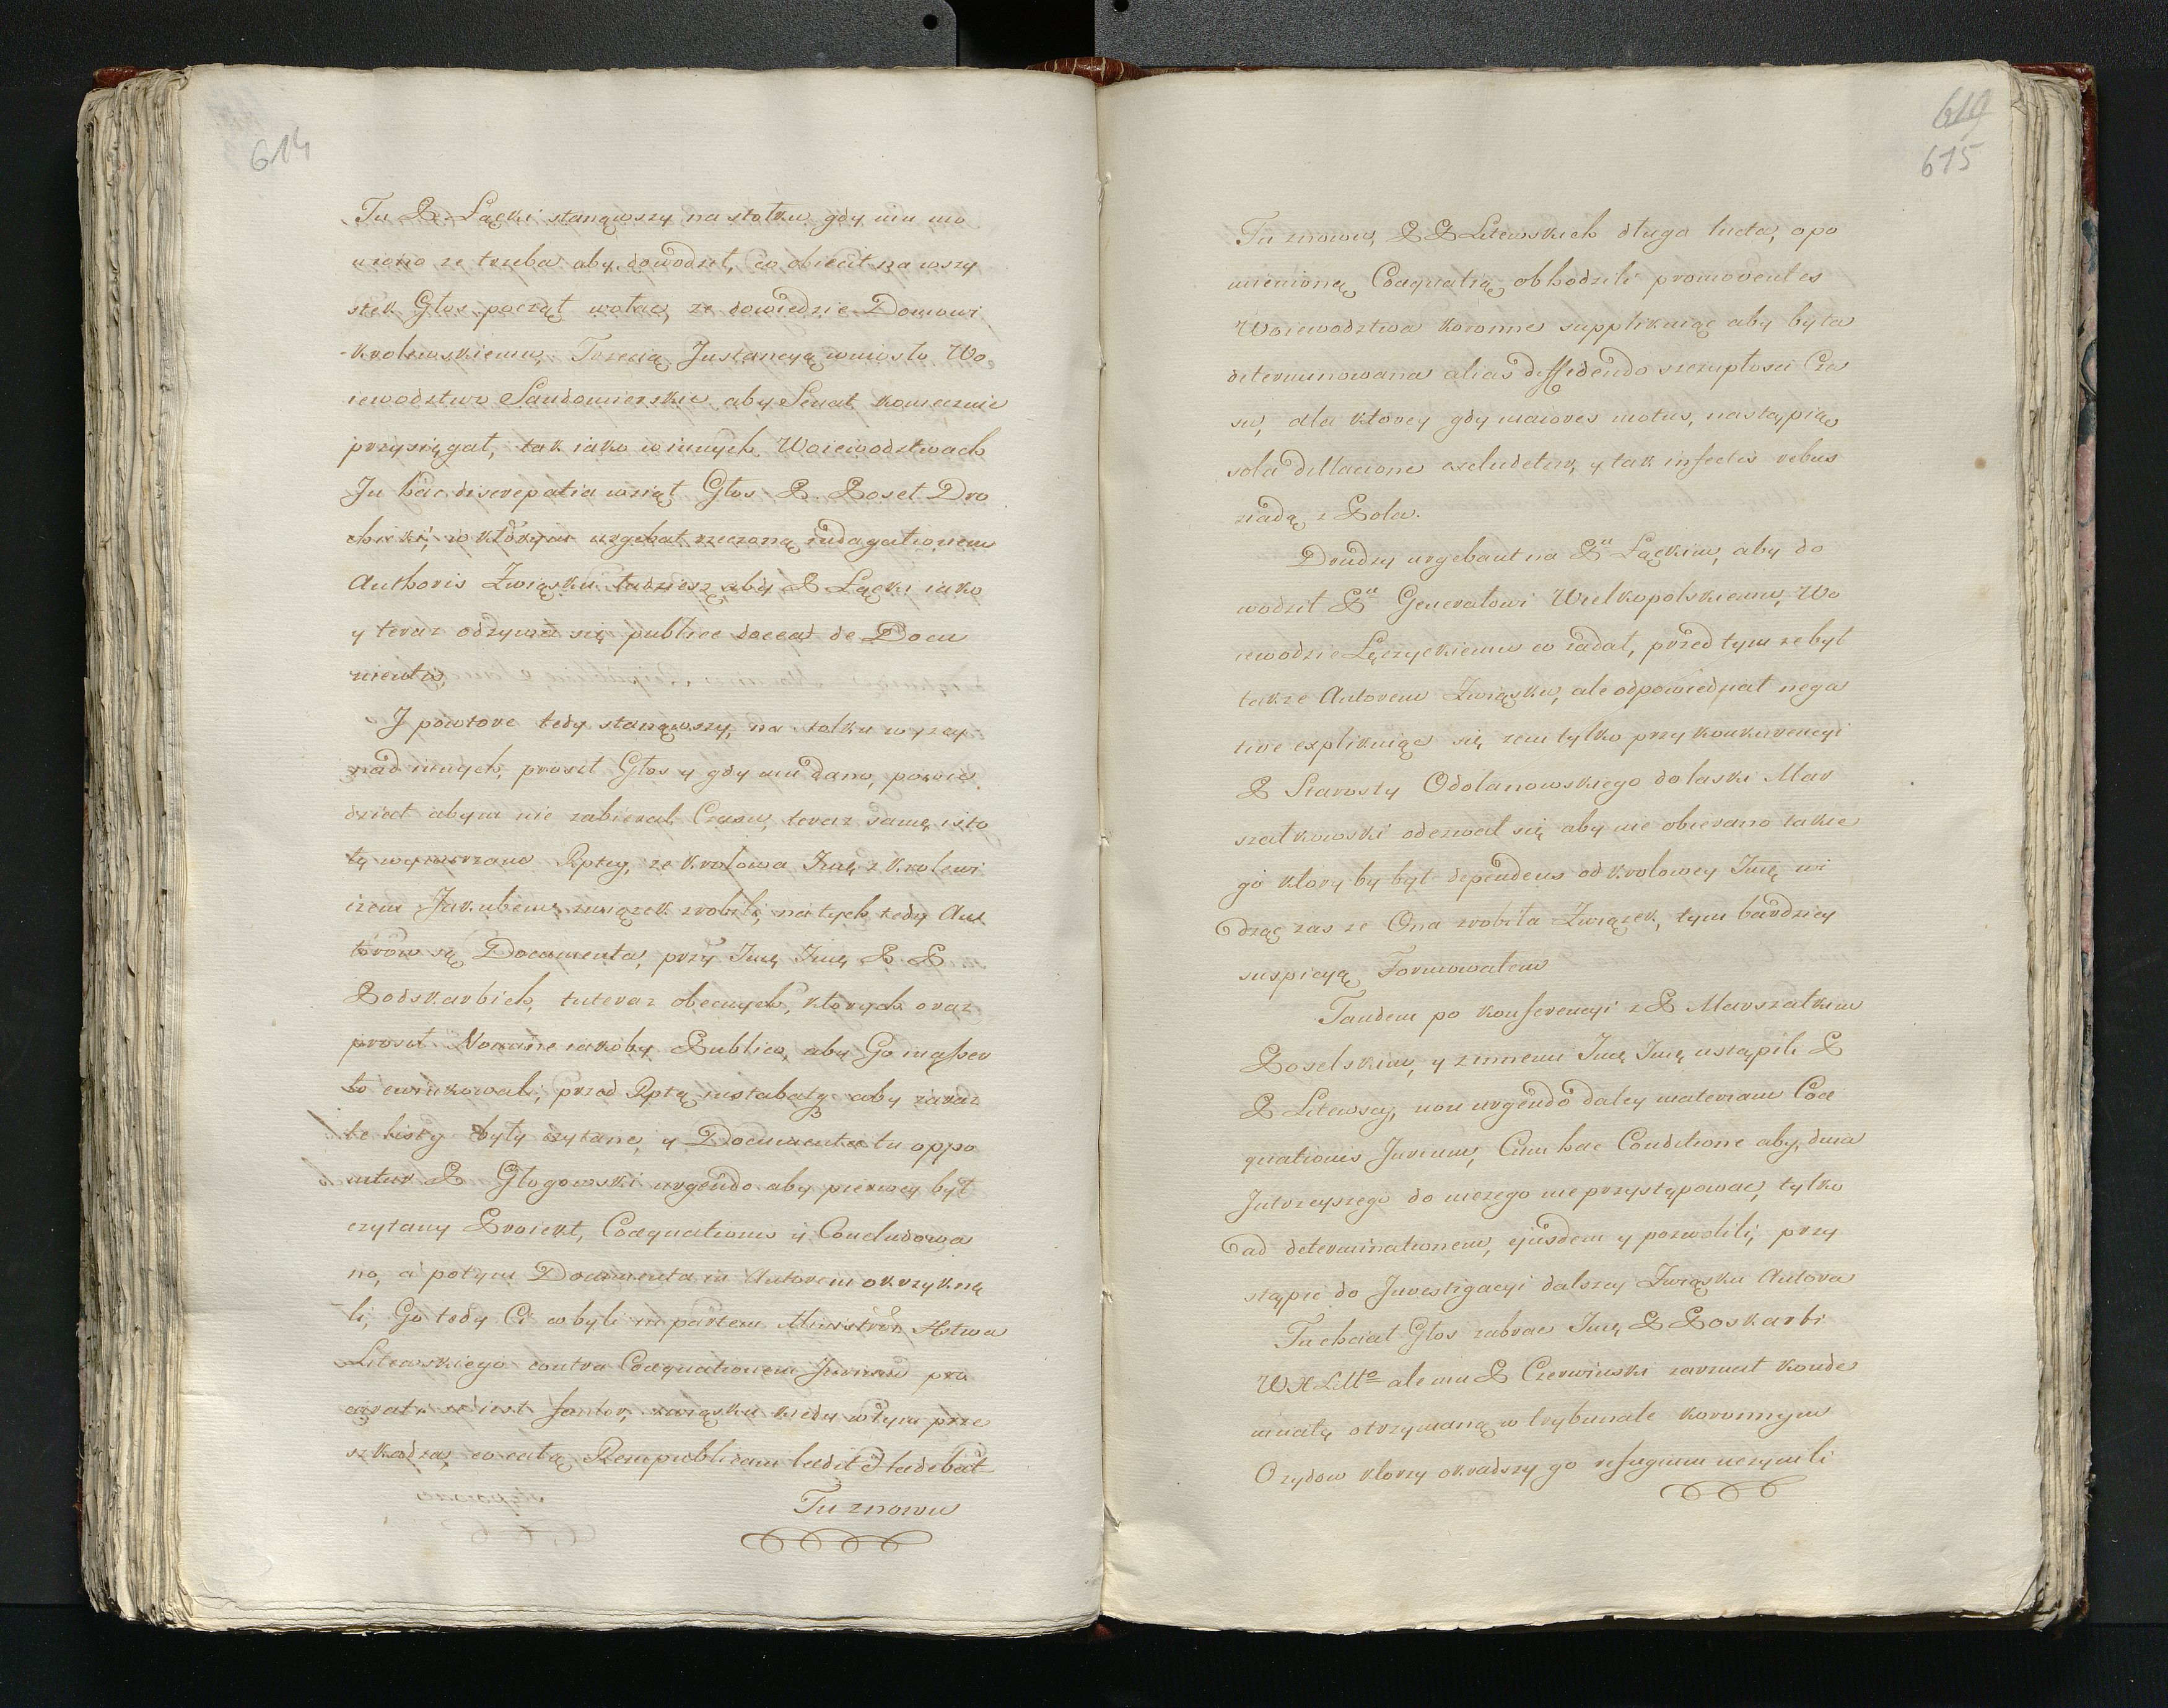 614
Tu P. Łącki stanąwszy na stołku gdy mu mo
wiono ze trzeba aby dowodził, co obiecił na wszy
stek Głos począł wołac, ze dowiedzie Domowi
krolewskiemu, Trzecią Instancyą wniosło Wo
iewodztwo Sandomierskie, aby Senat koniecznie
przysięgał, tak iako w innych Woiewodztwach
In hac discrepatia wziął Głos P. Poseł Dro
hicki, w ktorym urgebat rzeczoną indagationem
Authoris Związku tudziesz aby P Łącki iako
y teraz odzywa się publice docea de Docu
mentis
I powtore tedy stanąwszy, na stolku wyzey
nad innych, prosił Głos y gdy mu dano, powie
dział abym nie zabierał Czasu, teraz samę isto
tę wynurzam Rptey, ze krolowa Imę z krolewi
czem Jakubem związek zrobili, na tych tedy Aut
torow są Documenta, przy Imę Imę P P
Podskarbich, tuteraz obecnych, ktorych oraz
prosił Nomine iakoby Publico, aby Go in asser
to ewinkowali, przed Rptą instabatq aby zaraz
te listy były czytane, y Documenta tu oppo
nitur P Głogowski urgendo aby pierwey był
czytany Proiekt, Coæquationis y Concludowa
no, a potym Documenta in Autorem okrzyknę
li, Go tedy Ci co byli in partem Ministrów Xstwa
Litewskiego contra Coæquationem Jurium pro
curat. ze iest fautor, związku kiedy w tym prze
szkadza, co całą Rempublicam ledit et ledebat
Tu znowu
619
615
Tu znowu, P P Litewskich długa luda, o po
mienioną Coæquatią obhodzili promoventes
Woiewodztwa koronne supplikuiąc aby była
determinowana alias diffidendo szczupłosci Cza
su, dla ktorey gdy maiores motus, nastąpią
sola dillacione excludetur, y tak infectis rebus
ziadą z Pola.
Drudzy urgebant na Pa Łąckim, aby do
wodził Pu Generałowi Wielkopolskiemu, Wo
iewodzie Łęczyckiemu co zadał, przed tym ze był
takze Autorem Związku, ale odpowiedział nega
tive explikuiąc się zem tylko przy konkurencyi
P Starosty Odolanowskiego do laski Mar
szałkowski odezwał się aby nie obierano takie
go ktory by był dependens od krolowey Imę, wi
dząc zas ze Ona zrobiła Związek, tym bardziey
suspicyą Formowałem
Tandem po konferencyi z P Marszałkiem
Poselskim, y z innemi Imę Imę ustąpili P
P Litewscy, non urgendo daley materiam Coæ
quationis Jurium, Cum hac Conditione aby, dnia
Jutrzeyszego do niczego nie przystępowac, tylko
ad determinationem, ejusdem y pozwolili, przy
stąpic do Investigacyi dalszey Związku Autora
Tu chciał Głos zabrac Imę P Poskarbi
WX Litto ale mu P Czerwinski zarzucił konde
mnatę otrzymaną w trybunale koronnym
O zydow ktorzy okradszy go refugium uczynili